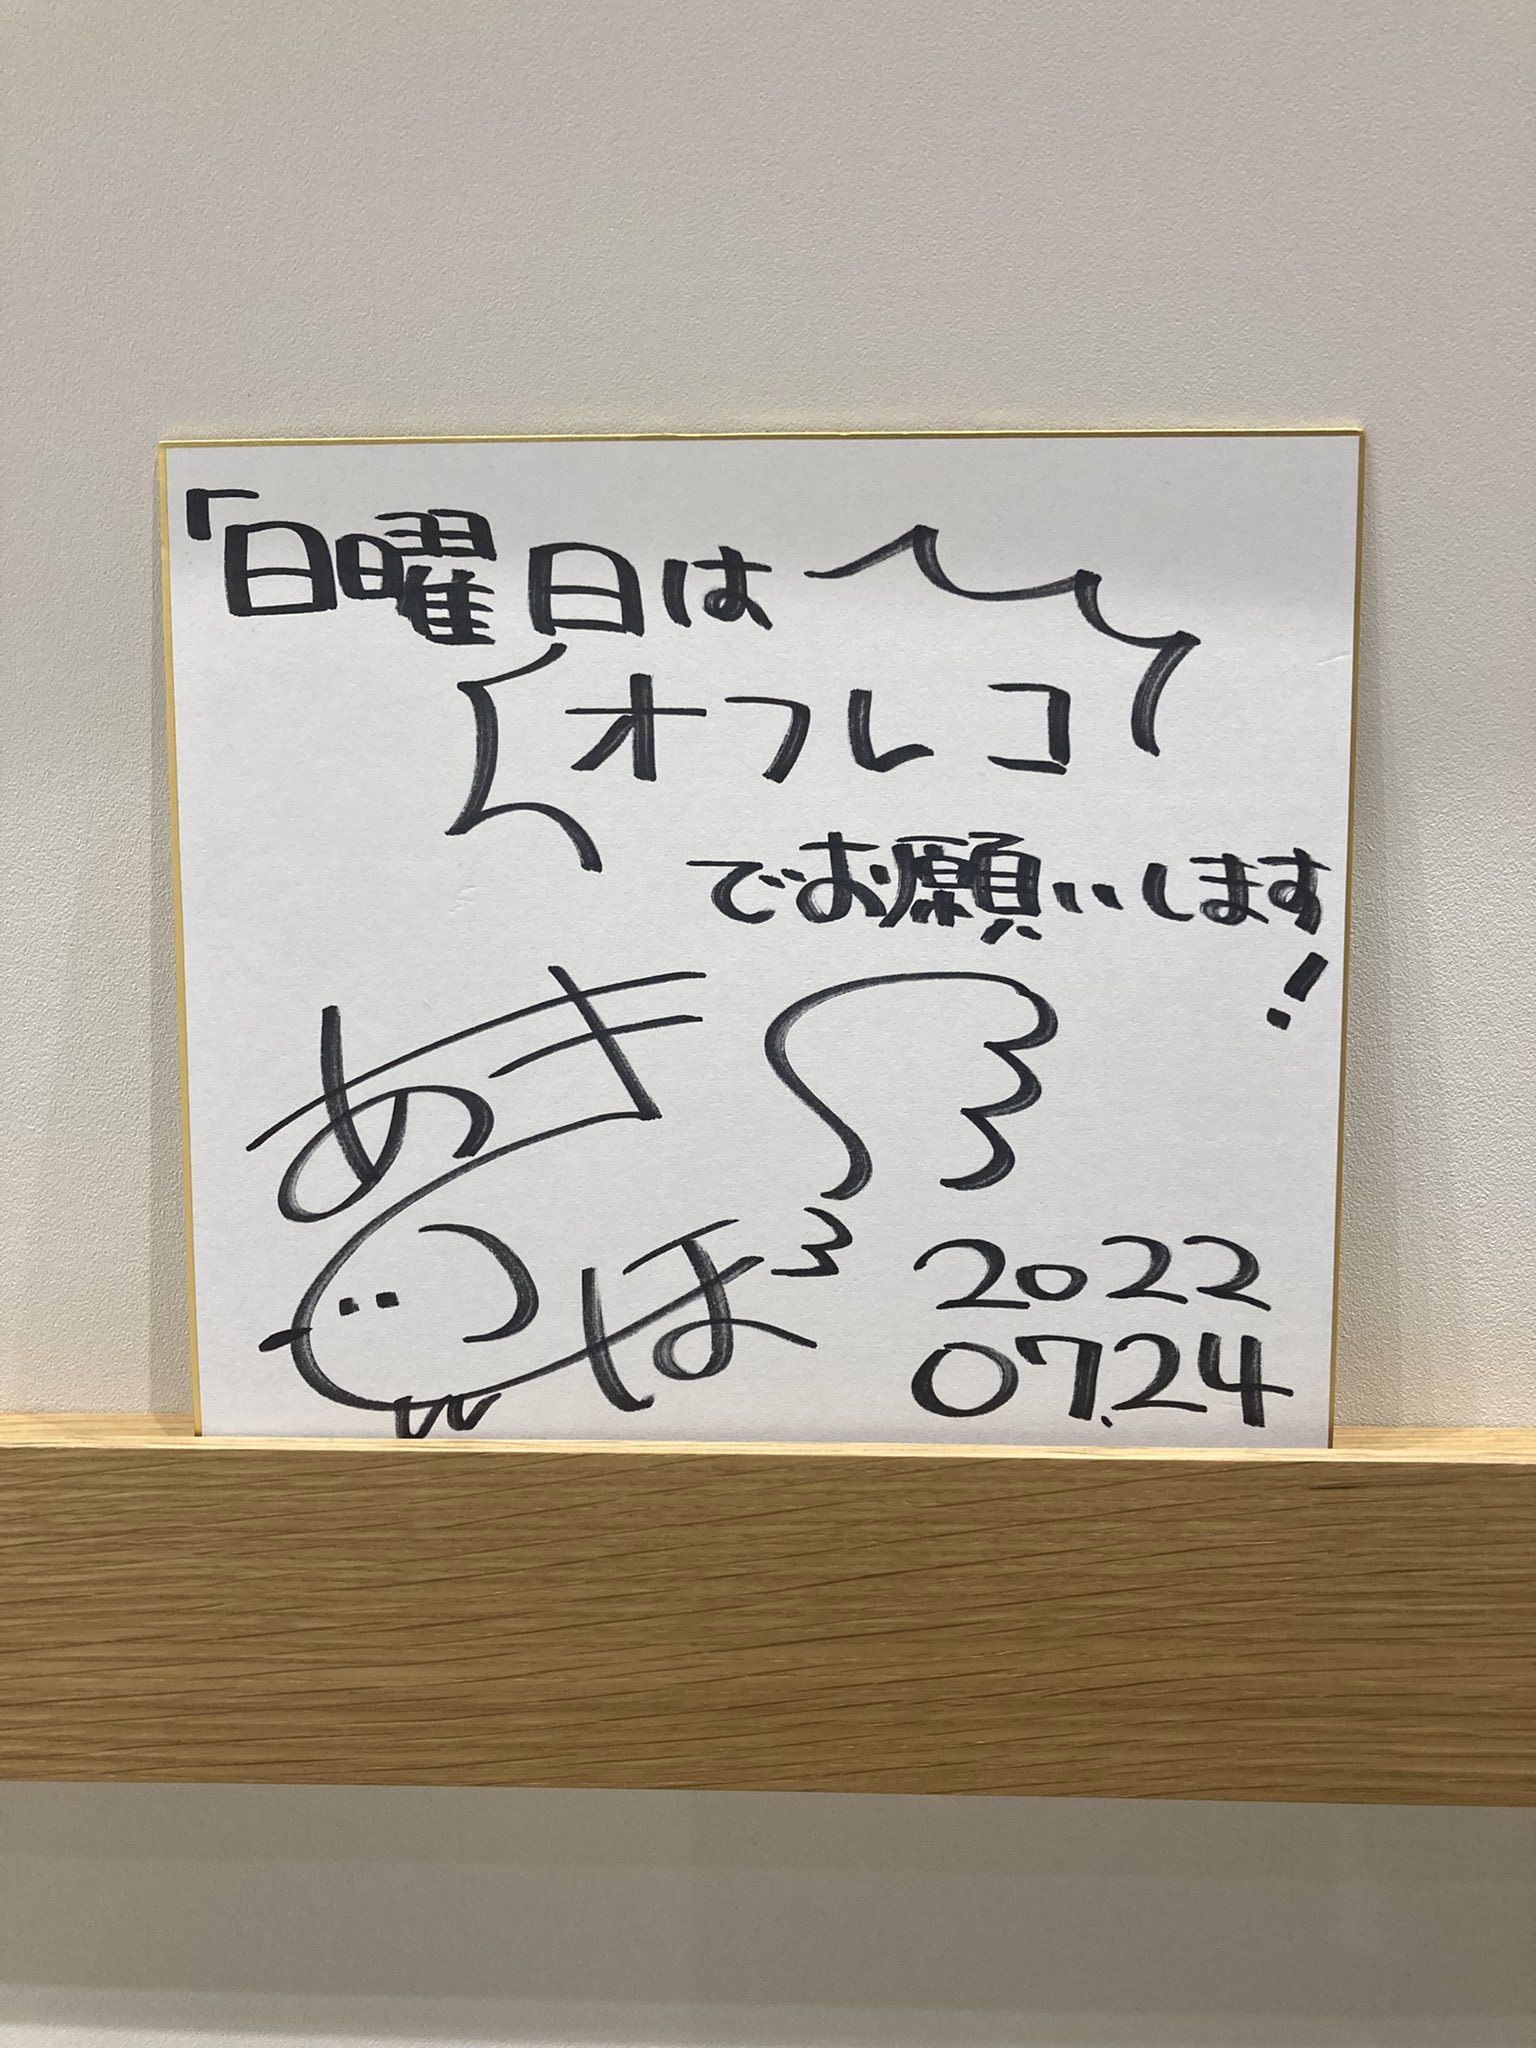 「日曜日は
オフレコ
でお願いします
!
あき
つば
2022
07.24